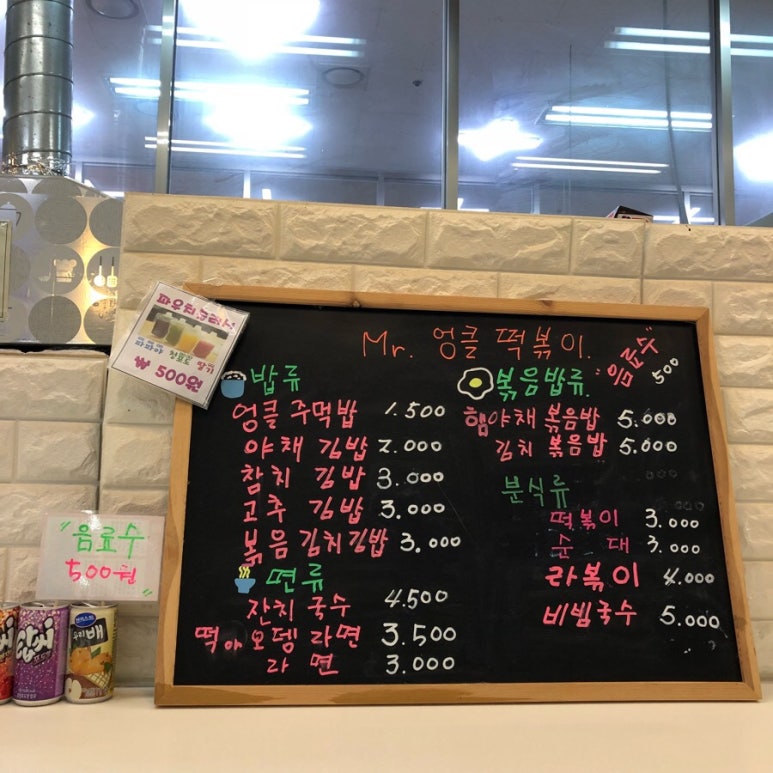 파우더음료시
파파야 청포도 딸기
₩ 500원
Mr. 엉클 떡볶이.
"음료수" 500
밥류
엉클 주먹밥 1.500
야채 김밥 2.000
참치 김밥 3.000
고추 김밥 3.000
볶음김치김밥 3.000
면류
잔치국수 4.500
떡아오뎅라면 3.500
라면 3.000
볶음밥류.
햄야채 볶음밥 5.000
김치 볶음밥 5.000
분식류
떡볶이 3.000
순대 3.000
라볶이 4.000
비빔국수 5.000
"음료수"
500원"
봅씨
우리배